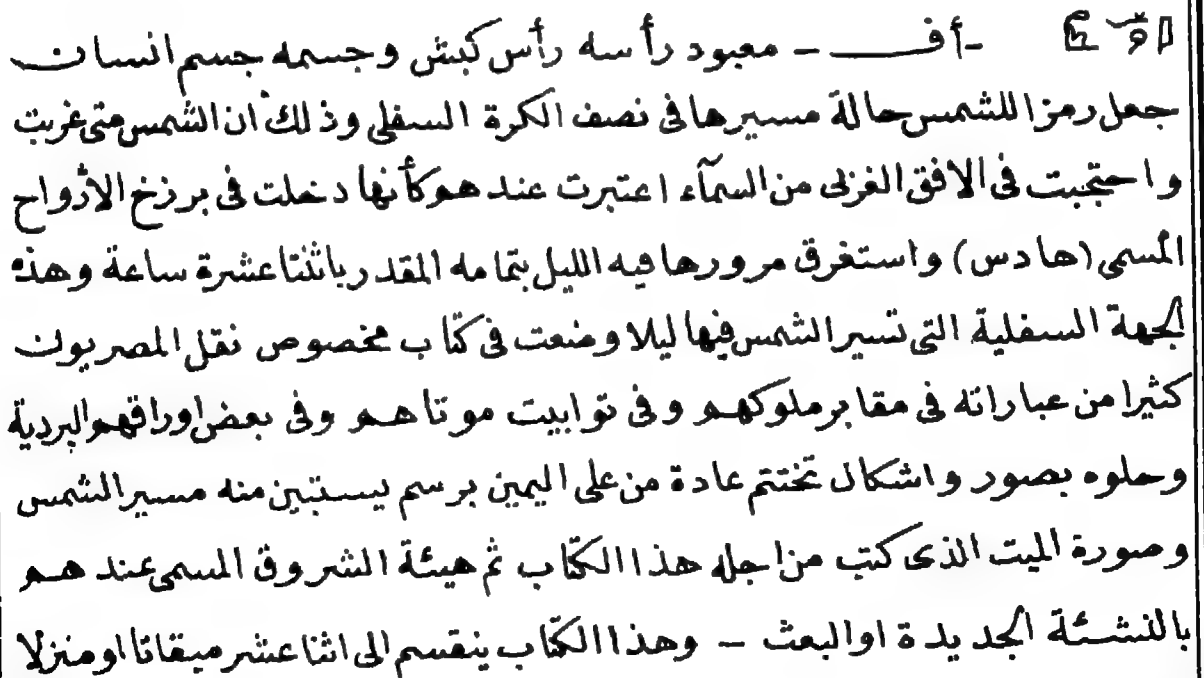 -أف- معبود رأسه رأس كبش وجسمه جسم انسان
جعل رمزا للشمس حالة مسيرها فى نصف الكرة السفلى وذلك أن الشمس متى غربت
واحتجبت فى الافق الغربى من السمآء اعتبرت عندهم كأنها دخلت فى برزخ الأرواح
المسمى (هادس) واستغرق مرورها فيه الليل بتمامه المقدر باثنتا عشرة ساعة وهذه
الجهة السفلية التى تسير الشمس فيها ليلا وضعت فى كتاب مخصوص نقل المصريون
كثيرا من عباراته فى مقابر ملوكهم وفى توابيت موتاهم وفى بعض اوراقهم البردية
وحلوه بصور واشكال تختتم عادة من على اليمين برسم يستبين منه مسير الشمس
وصورة الميت الذى كتب من اجله هذا الكتاب ثم هيئة الشروق المسمى عندهم
بالنشئة الجديدة او البعث - وهذا الكتاب ينقسم الى اثنا عشر ميقاتا او منزلا